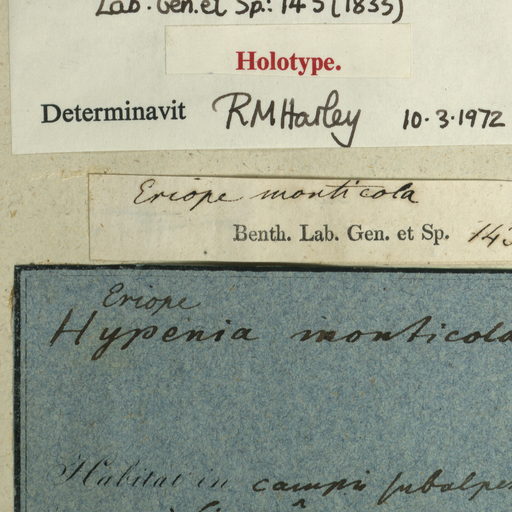 Lab. Gen. et Sp.: 143 (1833)
Holotype.
Determinavit RMHarley 10.3.1972
Eriope monticola
Benth. Lab. Gen. et Sp. 143
Eriope
Hypenia monticola
Habitat in campis subalpe